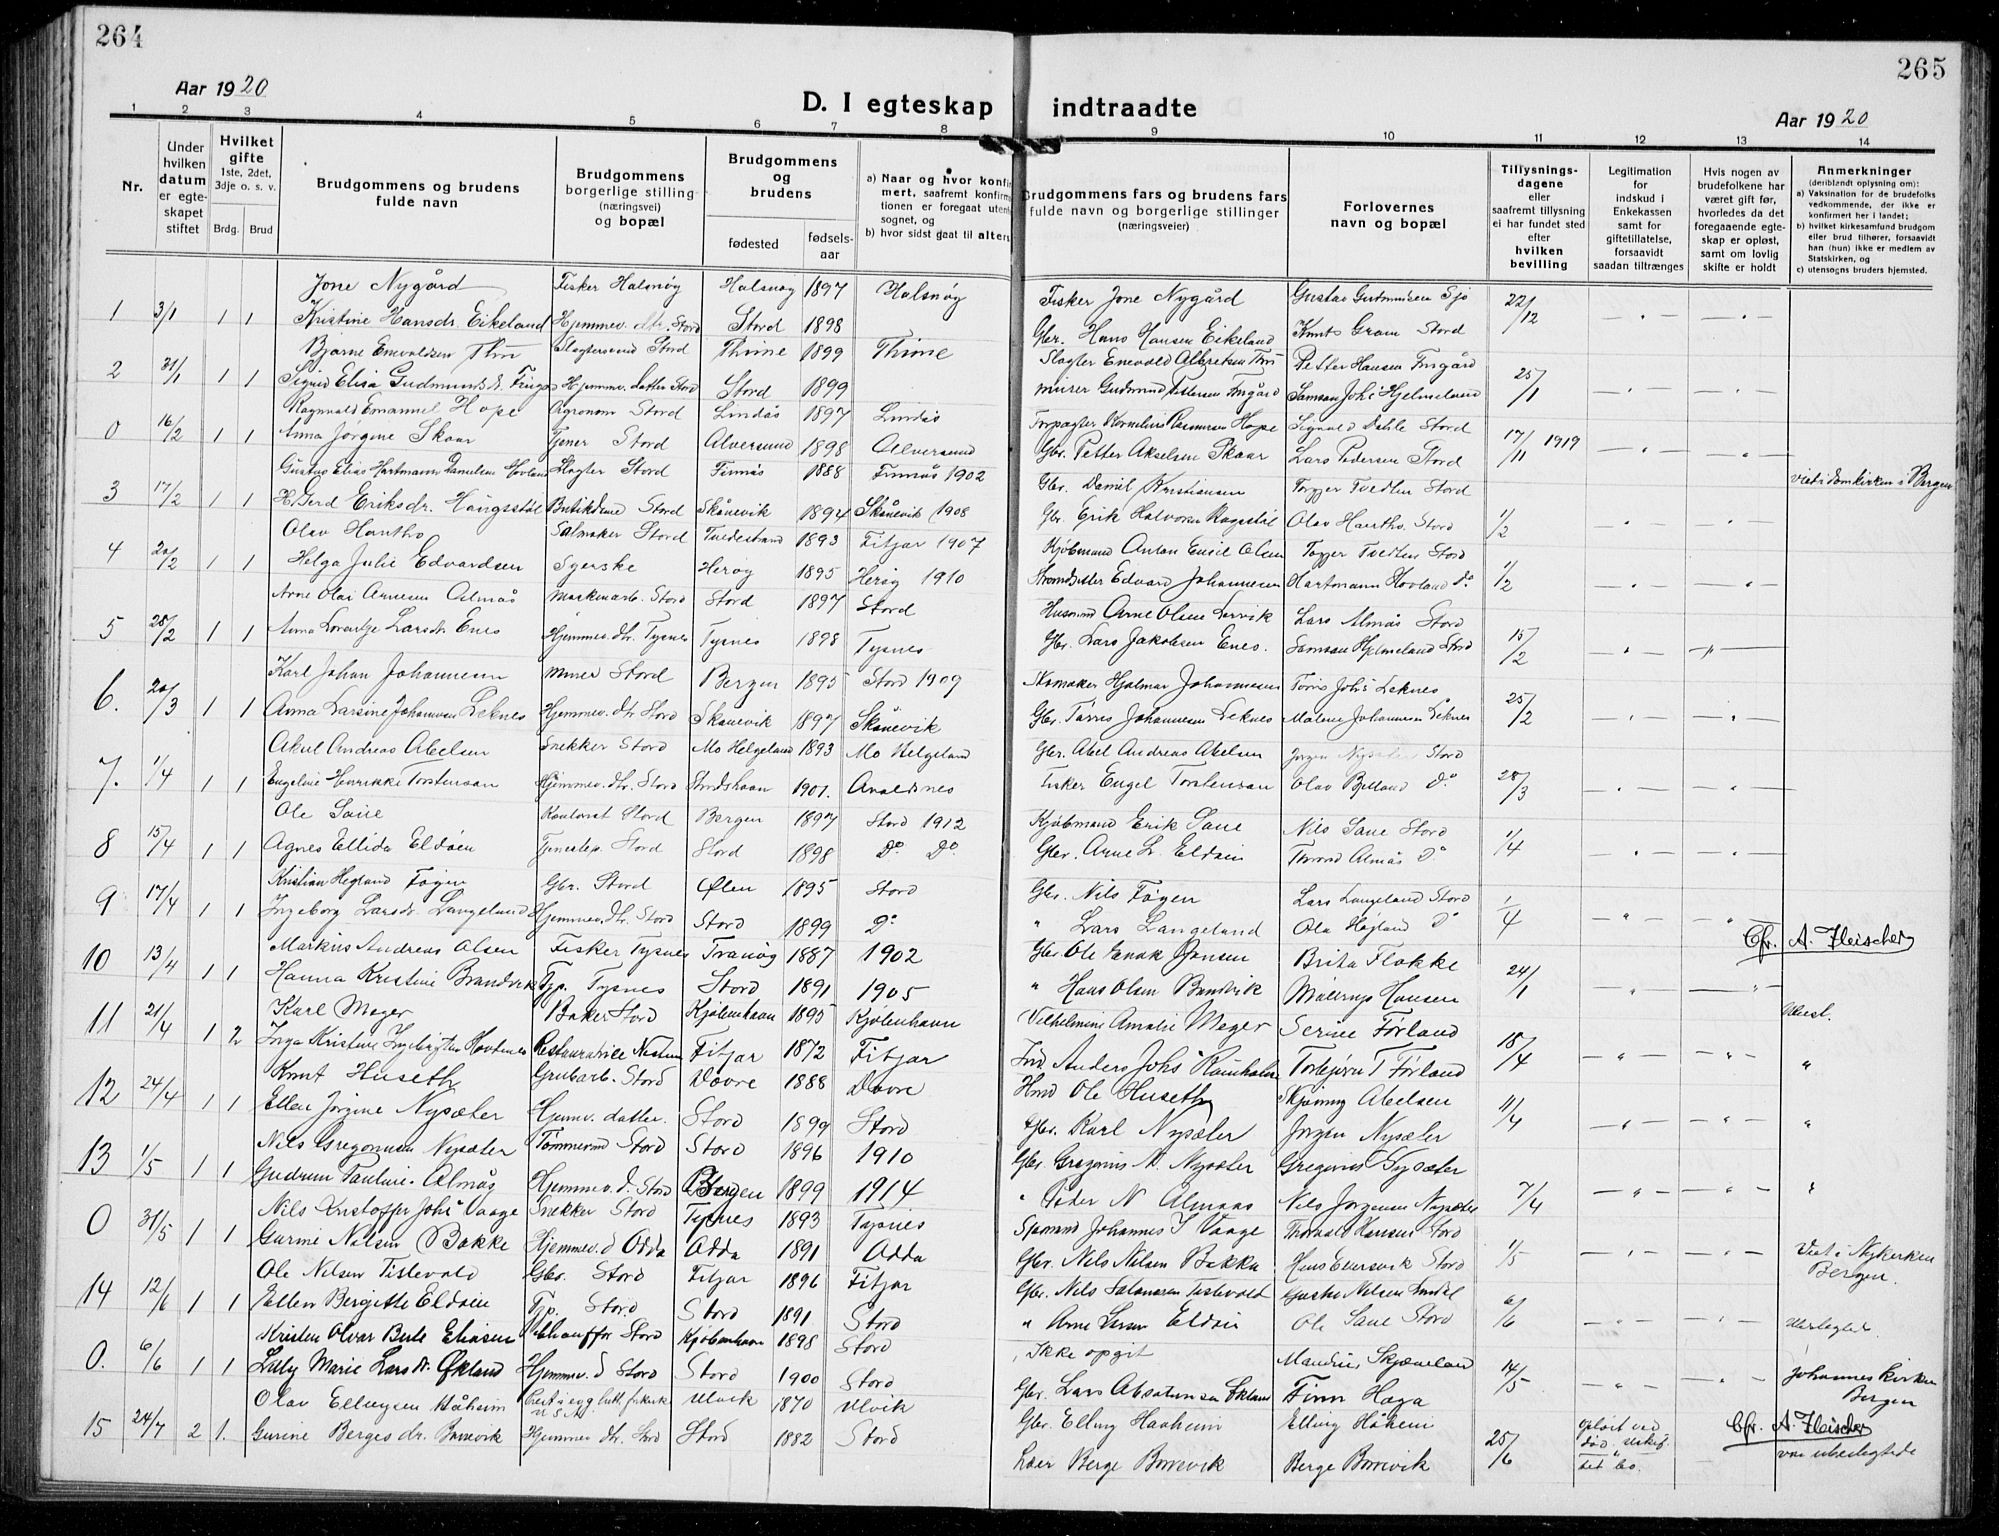 264
265
Aar 1920
D. I egteskap indtraadte
Aar 1920
1 2 3 4 5 6 7 8 9 10 11 12 13 14
Nr.
Under hvilken datum er egte-skapet stiftet
Hvilket gifte 1ste, 2det, 3dje o. s. v.
Brdg. Brud
Brudgommens og brudens fulde navn
Brudgommens borgerlige stilling (næringsvei) og bopæl
Brudgommens og brudens
fødested
fødsels-aar
a) Naar og hvor konfir mert, saafremt konfirm tionen er foregaat uten sognet, og
b) hvor sidst gaat til alters
Brudgommens fars og brudens fars fulde navn og borgerlige stillinger (næringsveier)
Forlovernes navn og bopæl
Tillysnings-dagene eller saafremt tillysning ei har fundet sted efter hvilken bevilling
Legitimation for indskud i Enkekassen samt for giftetillatelse, forsaavidt saadan tiltrænges
Hvis nogen av brudefolkene har været gift før, hvorledes da det foregaaende egte-skap er opløst, samt om lovlig skifte er holdt
Anmerkninger (deriblandt oplysning om):
a) Vaksination for de brudefolks vedkommende, der ikke er konfirmert her i landet;
b) hvilket kirkesamfund brudgom eller brud tilhører, forsaavidt han (hun) ikke er medlem av Statskirken, og
c) utensogns bruders hjemsted.
Jone Nygård Fisker Halsnøy Halsnøy 1897 Halsnøy Fisker Jone Nygård Gustav Gudmundsen Sjo
1 3/1 1 1 Kristine Hansdr. Eikeland Hjemmev. dtr. Stord Stord 1898 Gbr. Hans Hansen Eikeland Knut Gram Stord 22/12
Bjarne Enevoldsen Slagtersvend Stord Thime 1899 Thime Slagter Enevold Albretsen Petter Hansen Frugård
2 31/1 1 1 Sigrid Elisa Gudmundsdr. Hjemmev. datter Stord Stord 1899 murer Gudmund Pettersen Samson Johs Hjelmeland 25/1
Ragnvald Emanuel Hope Agronom Stord Lindås 1897 Lindås Forpagter Kornelius Rasmussen Hope Sigvald Dahle Stord
0 16/2 1 1 Anna Jørgine Skaar Tjener Stord Alversund 1898 Alversund Gbr. Petter Akselsen Skaar Lars Pedersen Stord 17/11 1919
Gustav Elias Hartmann Danielsen Hovland Slagter Stord Finnås 1888 Finnås 1902 Gbr. Daniel Kristiansen Torger Tvedten Stord Viet i Domkirken i Bergen
3 17/2 1 1 Gerd Eriksdr. Haugsstøl Butikdame Stord Skånevik 1894 Skånevik 1908 Gbr. Erik Halvorsen Olav Hantho Stord 1/2
Olav Hantho Salmaker Stord Tvedestrand 1893 Fitjar 1907 Kjøbmand Anton Emil Olsen Torger Tvedten Stord
4 20/2 1 1 Helga Julie Edvardsen Syerske Herøy 1895 Herøy 1910 Strandsitter Edvard Johannesen Hartmann Hovland Do 1/2
Arne Olai Arnesen Almås Maskinarb. Stord Stord 1897 Stord Husmand Arne Olsen Lervik Lars Almås Stord
5 28/2 1 1 Anna Lovartze Larsdr. Enes Hjemmev. dtr. Tysnes Tysnes 1898 Tysnes Gbr. Lars Jakobsen Enes. Samson Hjelmeland Stord 15/2
Karl Johan Johannesen Murer Stord Bergen 1895 Stord 1909 Skomaker Hjalmar Johannesen Tørris Johs Leknes
6. 20/3 1 1 Anna Larsine Johannesen Leknes Hjemmev. dtr Stord Skånevik 1897 Skånevik Gbr. Tørris Johannesen Leknes Malene Johannesen Leknes 25/2
Aksel Andreas Abelsen Snekker Stord Mo Helgeland 1893 Mo Helgeland Gbr. Abel Andreas Abelsen Jørgen Nysæter Stord
7. 1/4 1 1 Engeline Henrikke Torstensen Hjemmev. dtr. Stord 1901. Avaldsnes Fisker Engel Torstensen Olav Bjelland Do 28/3
Ole Sane Kontorist Stord Bergen 1897 Stord 1912 Kjøbmand Erik Sane Nils Sane Stord
8 15/4 1 1 Agnes Ellida Eldøen Stord Stord 1898 Do Do Gbr. Arne L. Eldøen Almås Do 1/4
Kristian Hegland Føgen Gbr. Stord Ølen 1895 Stord Gbr. Nils Føgen Lars Langeland Stord
9 17/4 1 1 Ingeborg Larsdr. Langeland Hjemmev. dtr. Stord Stord 1899 Do " Lars Langeland Ola Høyland Do 1/4
Markus Andreas Olsen Fisker Tysnes Tranøy 1887 1902 Gbr. Ole Enok Jensen Brita Flokke Cfr. A. Fleischer
10 13/4 1 1 Hanna Kristine Brandvik Typ. Tysnes Stord 1891 1905 " Hans Olsen Brandvik Hansen 24/1
Karl Mager Baker Stord Kjøbenhavn 1895 Kjøbenhavn Vilhelmine Amalie Mager Serine Førland
11 21/4 1 2 Inga Kristine Ingebrigtsen Fitjar 1872 Fitjar Ind. Anders Johs Torbjørn T Førland 18/4 "
Knut Huseth Grubarb. Stord Dovre 1888 Dovre Hmd Ole Huseth Abelsen
12 24/4 1 1 Ellen Jørgine Nysæter Hjemv. datter. Stord 1899 Stord Gbr. Karl Nysæter Jørgen Nysæter 11/4 "
Nils Gregoriusen Nysæter Tømmermd Stord Stord 1896 1910 Gbr. Gregorius N. Nysæter Gregorius Nysæter
13 1/5 1 1 Gudrun Pauline Almås Hjemmev. d. Stord Bergen 1899 1914 " Peder N Almaas Nils Jørgensen Nysæter 7/4 "
Nils Kristoffer Johs Vaage Snekker Stord Tysnes 1893 Tysnes Sjømand Johannes I Vaage Thorvald Hansen Stord
0 31/5 1 1 Gurine Nilsen Bakke Hjemmev. d Odda Odda 1891 Odda Gbr. Nils Nilsen Bakke Stord 1/5 Viet i Nykirken Bergen.
Ole Nilsen Tislevold Gbr. Stord Fitjar 1896 Fitjar Gbr. Nils Salamonsen Tislevold Gustav Nilsen
14 12/6 1 1 Ellen Bergitte Eldøen Typ. Stord Stord 1891 Stord " Arne Larsen Eldøen Ole Sane Stord 6/6
Kristen Olvar Buhl Eliasen Stord Kjøbenhavn 1898 Stord Ikke opgit Skjæveland
0. 6/6 1 1 Lilly Marie Larsdr. Økland Hjemmev. d Stord Stord 1900 Stord Gbr. Lars Absalonsen Økland Finn Haga 14/5 Johannes kirken Bergen
Olav Ellingsen Håheim Ulvik 1870 Ulvik Gbr. Elling Haaheim Elling Håheim
15 24/7 2 1. Gurine Bergesdr. Borrevik Hjemmev dtr. Stord Stord 1882 Stord Lær Berge Borrevik Berge Borrevik 25/6 opløst ved død, uskif- tet bo. Cfr. A. Fleischer